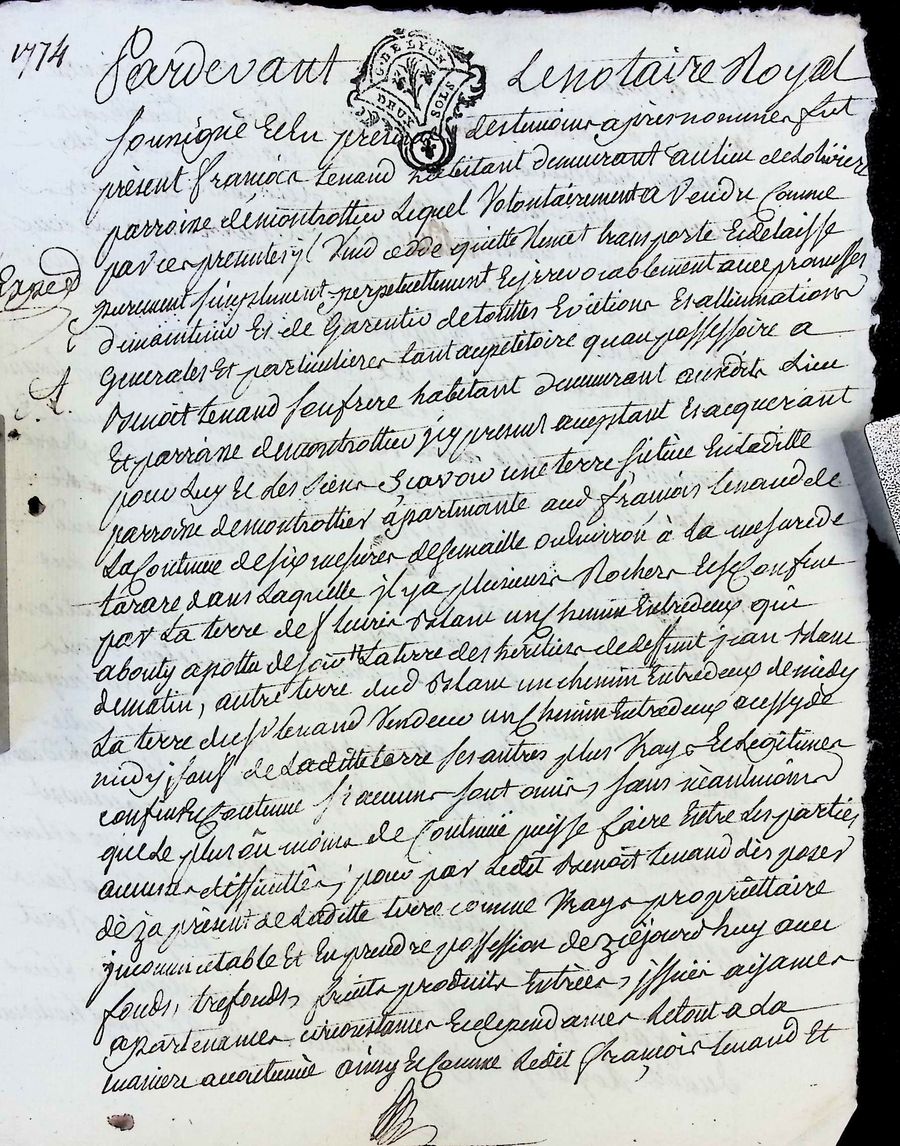 1774
Pardevant Le notaire Royal
G. DE LYON
DEUX SOLS
soussigné Et En présence des temoins après nommes fut
présent françois tenand habitant demeurant au lieu de
parroisse demontrottier Lequel Volontairement a Vendu Comme
par ces presentes il Vend cedde quitte Remet transporte Et delaisse
Exped
purement simplement perpetuellement Et jrrevocablement avec promesses
de maintenir Et de Garentir de touttes Evictions Et
Generales Et particulieres tant au petitoire quau possessoire a
Benoit tenand son frere habitant demeurant audit Lieu
Et parroisse demontrottier jcy present acceptant Et acquerant
pour Luy Et Les siens Scavoir une terre sitüee En Laditte
parroisse demontrottier apartenante aud françois tenand de
La Contenue de six mesures de semaille ou Environ à La mesure de
tarare dans Laquelle jl y a plusieurs Rochers Et se Confine
par La terre de un Chemin Entredeux qui
abouty de soir La terre des héritiers de deffunt jean
de matin, autre terre dud un chemin Entredeux de midy
La terre du sr tenand Vendeur un Chemin Entredeux aussy de
midy sauf de Laditte terre ses autres plus Vrays Et Legitimes
confins Et Contenue si aucuns sont omis, sans néantmoins
que Le plus ou moins de Contenue puisse faire Entre Les parties
aucunes difficultés, pour par Ledit Benoit tenand disposer
dèza présent de Laditte terre comme Vray propriéttaire
jncommutable Et En prendre possession dezaejourdhuy avec
fonds, trefonds, fruits produits Entrées, jssües aisances
apartenances circonstances Et dependances Le tout a La
maniere accoutumée ainsy Et Comme Ledit françois tenand Et